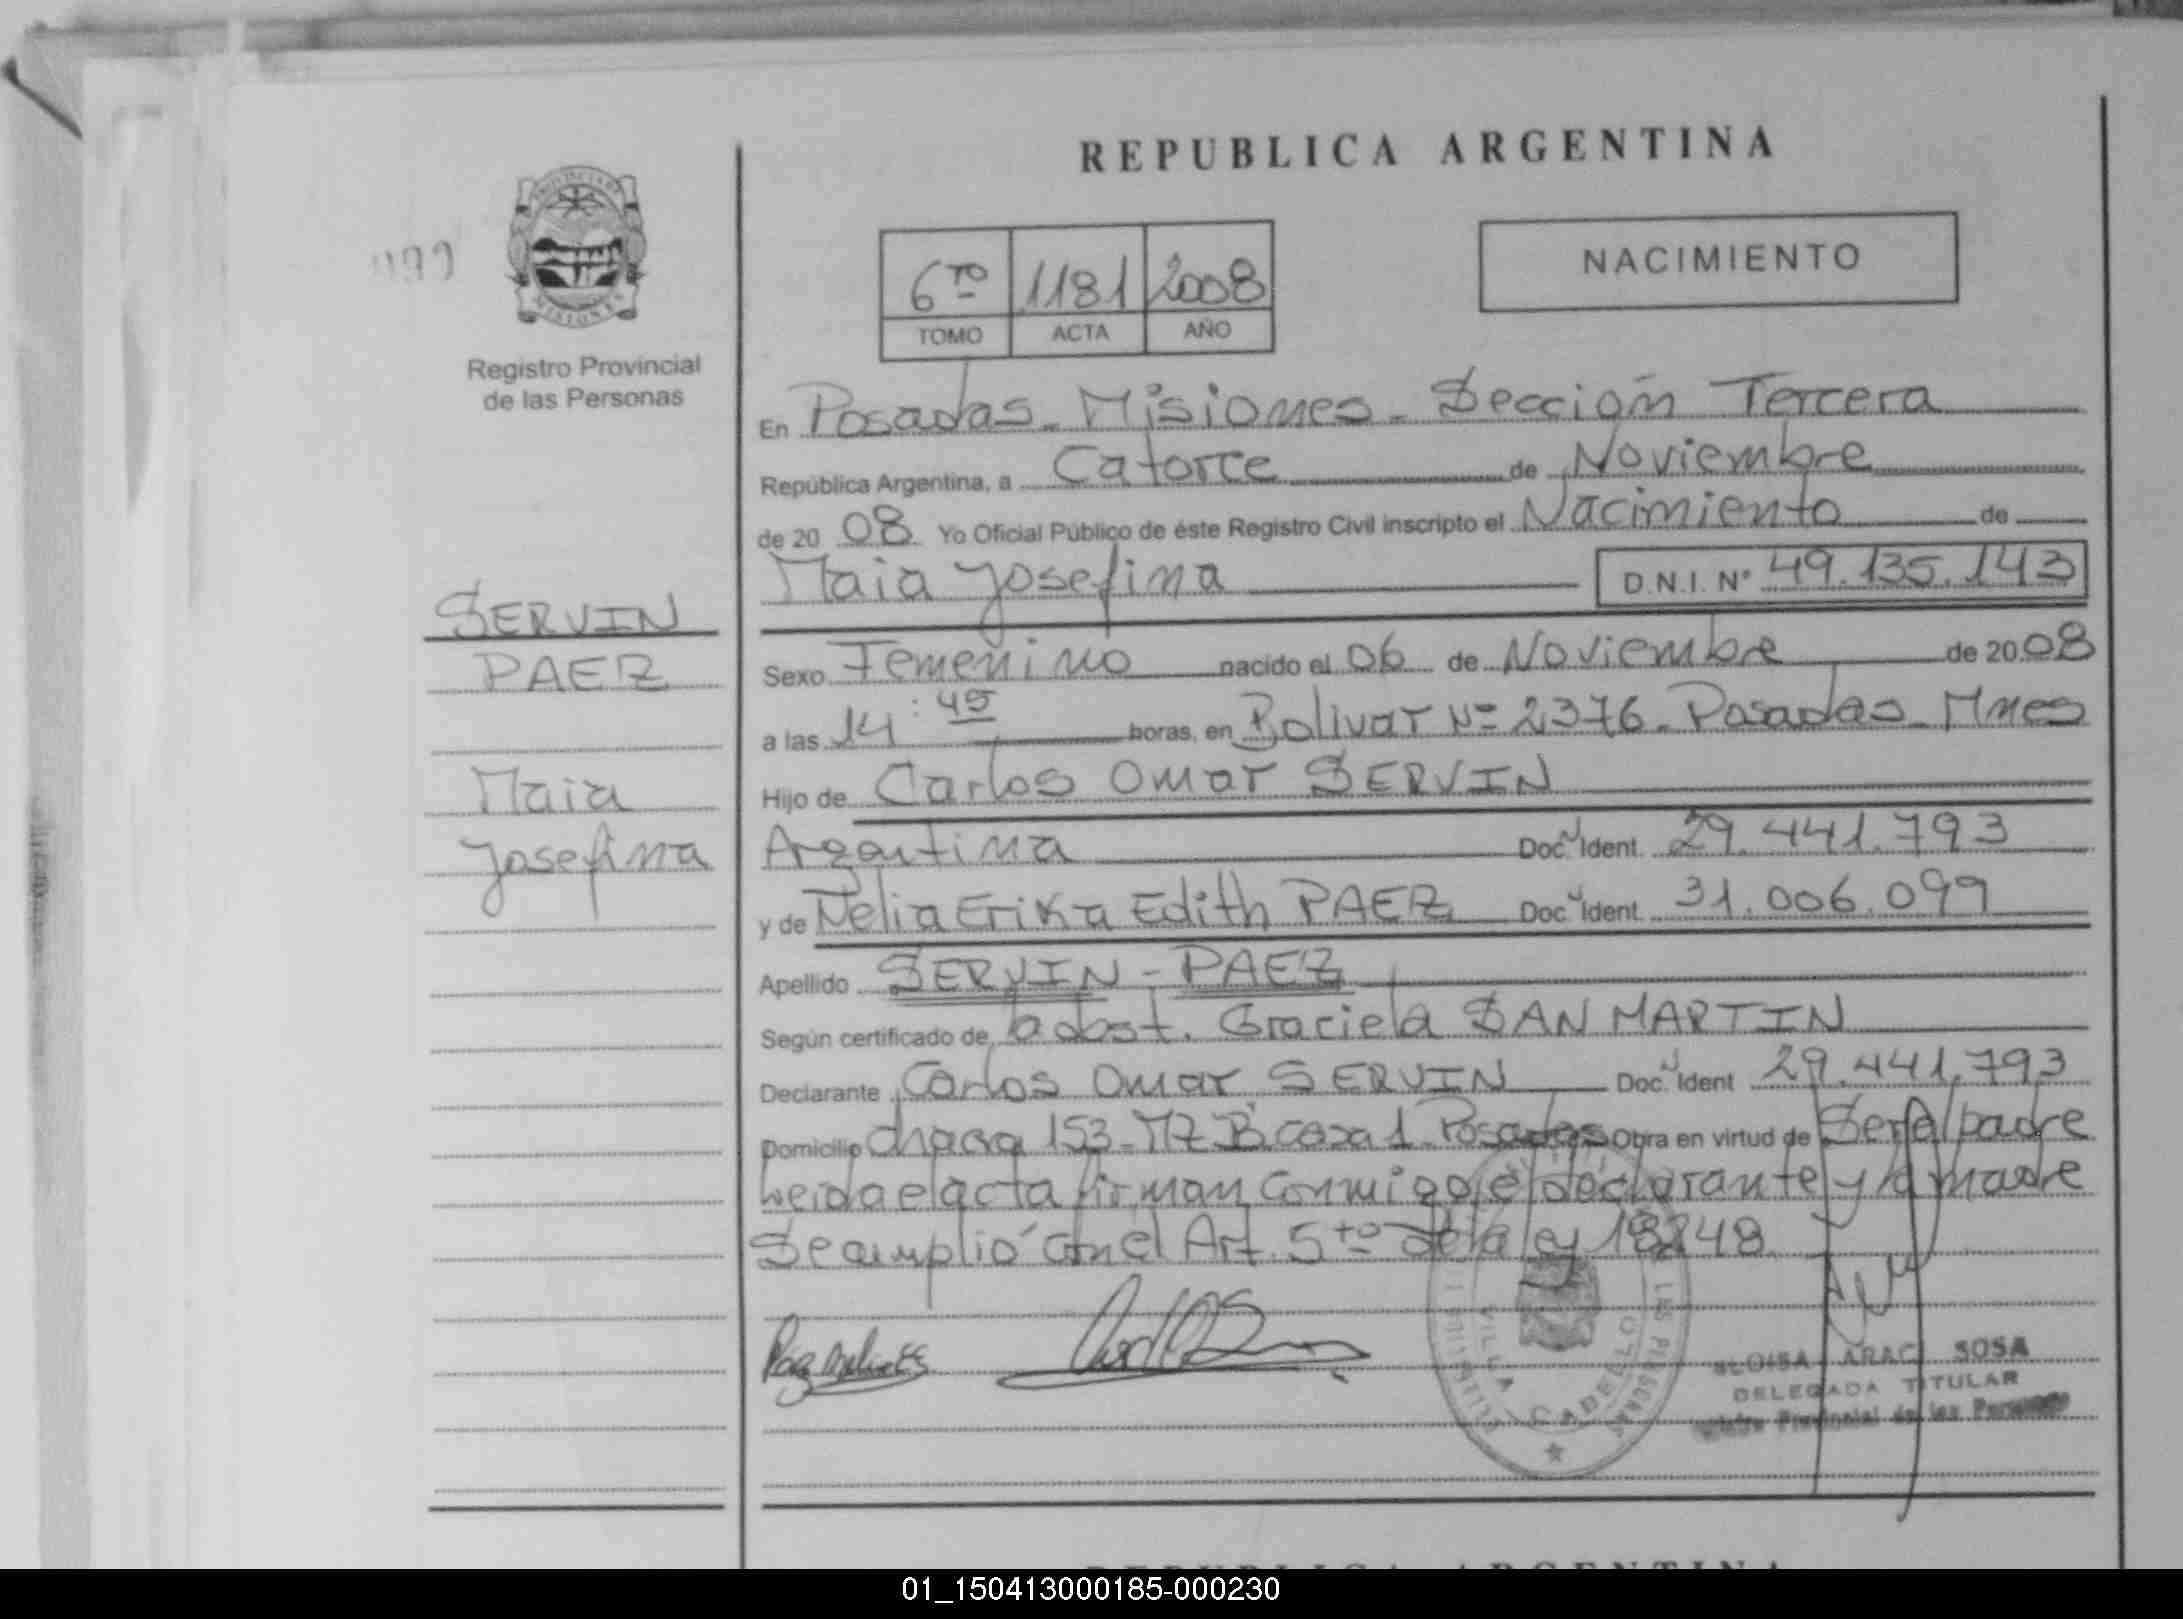 REPUBLICA ARGENTINA
PROVINCIA DE
MISIONES
Registro Provincial
de las Personas
6TO 1181 2008
TOMO ACTA AÑO
NACIMIENTO
En Posadas - Misiones - Sección Tercera
República Argentina, a Catorce de Noviembre
de 20 08 Yo Oficial Público de éste Registro Civil inscripto el Nacimiento de
Maia Josefina D.N.I. Nº 49.135.143
SERVIN
PAEZ
Maia
Josefina
Sexo Femenino nacido el 06 de Noviembre de 2008
a las 14:45 horas, en Bolivar Nº 2376 - Posadas - Mnes
Hijo de Carlos Omar SERVIN
Argentina Doc. Ident. 29.441.793
y de Nelia Erika Edith PAEZ Doc. Ident. 31.006.099
Apellido SERVIN - PAEZ
Según certificado de, obst. Graciela SAN MARTIN
Declarante Carlos Omar SERVIN Doc. Ident 29.441.793
Domicilio chacra 153 - MZ B casa 1 Posadas Obra en virtud de Ser el padre
Leida el acta firman conmigo el declarante y la madre
Se cumplió con el Art. 5to de la ley 18248
VILLA CABELLO
LAS PERSONAS
SOSA
DELEGADA TITULAR
Provincial de las Personas
REPUBLICA ARGENTINA
01_150413000185-000230